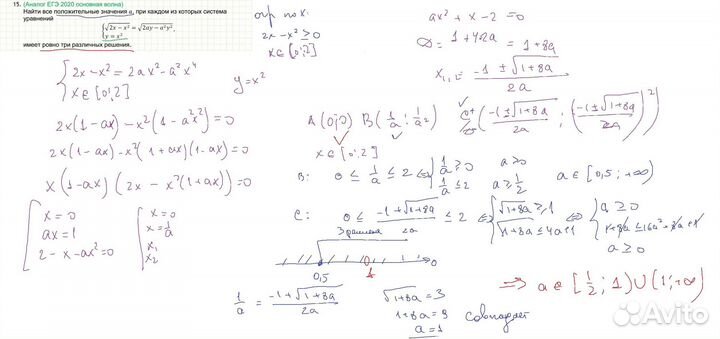 15. (Аналог ЕГЭ 2020 основная волна)
Найти все положительные значения a, при каждом из которых система
уравнений
{ √(2x − x²) = √(2ay − a²y²),
y = x²
имеет ровно три различных решения.
{ 2x − x² = 2ax² − a²x⁴
x ∈ [0; 2]
y = x²
2x(1 − ax) − x²(1 − a²x²) = 0
2x(1 − ax) − x²(1 + ax)(1 − ax) = 0
x(1 − ax)(2x − x²(1 + ax)) = 0
[ x = 0
ax = 1
2 − x − ax² = 0
[ x = 0
x = 1/a
x₁
x₂
огр по x:
2x − x² ≥ 0
x ∈ [0; 2]
ax² + x − 2 = 0
D = 1 + 4·2a = 1 + 8a
x₁,₂ = (−1 ± √(1 + 8a)) / 2a
A (0; 0) B (1/a; 1/a²) C± ((−1 ± √(1 + 8a)) / 2a; ((−1 ± √(1 + 8a)) / 2a)²)
x ∈ [0; 2]
B: 0 ≤ 1/a ≤ 2 ⇔ { 1/a ≥ 0
1/a ≤ 2
a > 0
a ≥ 1/2
a ∈ [0,5; +∞)
C: 0 ≤ (−1 + √(1 + 8a)) / 2a ≤ 2 ⇔ { √(1 + 8a) ≥ 1
√(1 + 8a) ≤ 4a + 1
⇔ { a ≥ 0
1 + 8a ≤ 16a² + 8a + 1
a ≥ 0
3 решения
0,5 1
⇒ a ∈ [1/2; 1) ∪ (1; +∞)
1/a = (−1 + √(1 + 8a)) / 2a
√(1 + 8a) = 3
1 + 8a = 9
a = 1
совпадает
Avito